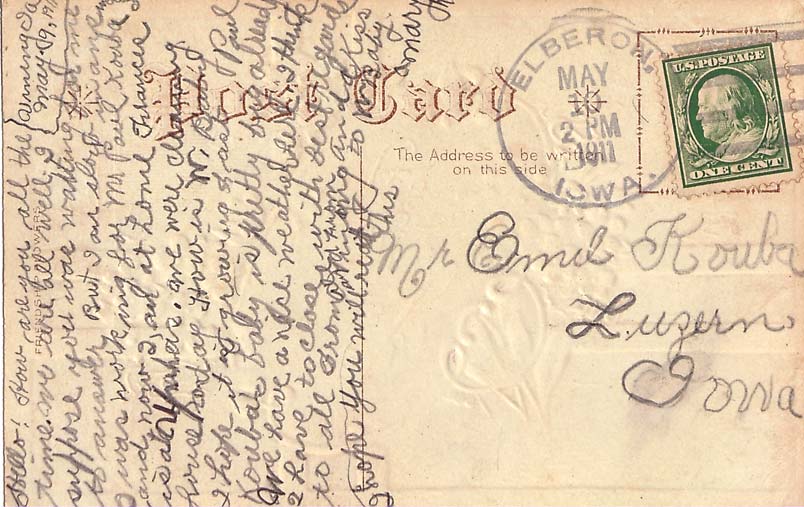 Post Card
The Address to be written
on this side
ELBERON,
MAY
2 PM
1911
IOWA.
U.S. POSTAGE
ONE CENT
Mr Emil Kouba
Luzern
Iowa
Vining Ia
May 19, 1911
Hello: How are you all the
time we are all well, I
suppose you was waiting for me
to answer But I am slow
I was working for Mr Paul Kouba
and now I am at home Frances
is at were cleaning
house today How is W. Baby
I hope it is growing fast Paul
Koubas baby is pretty big already
We have a nice weather I think
I have to close with best regards
to all From
Vining Ia and Kiss
to Baby
I hope you will this
Mary
FRIENDSHIP